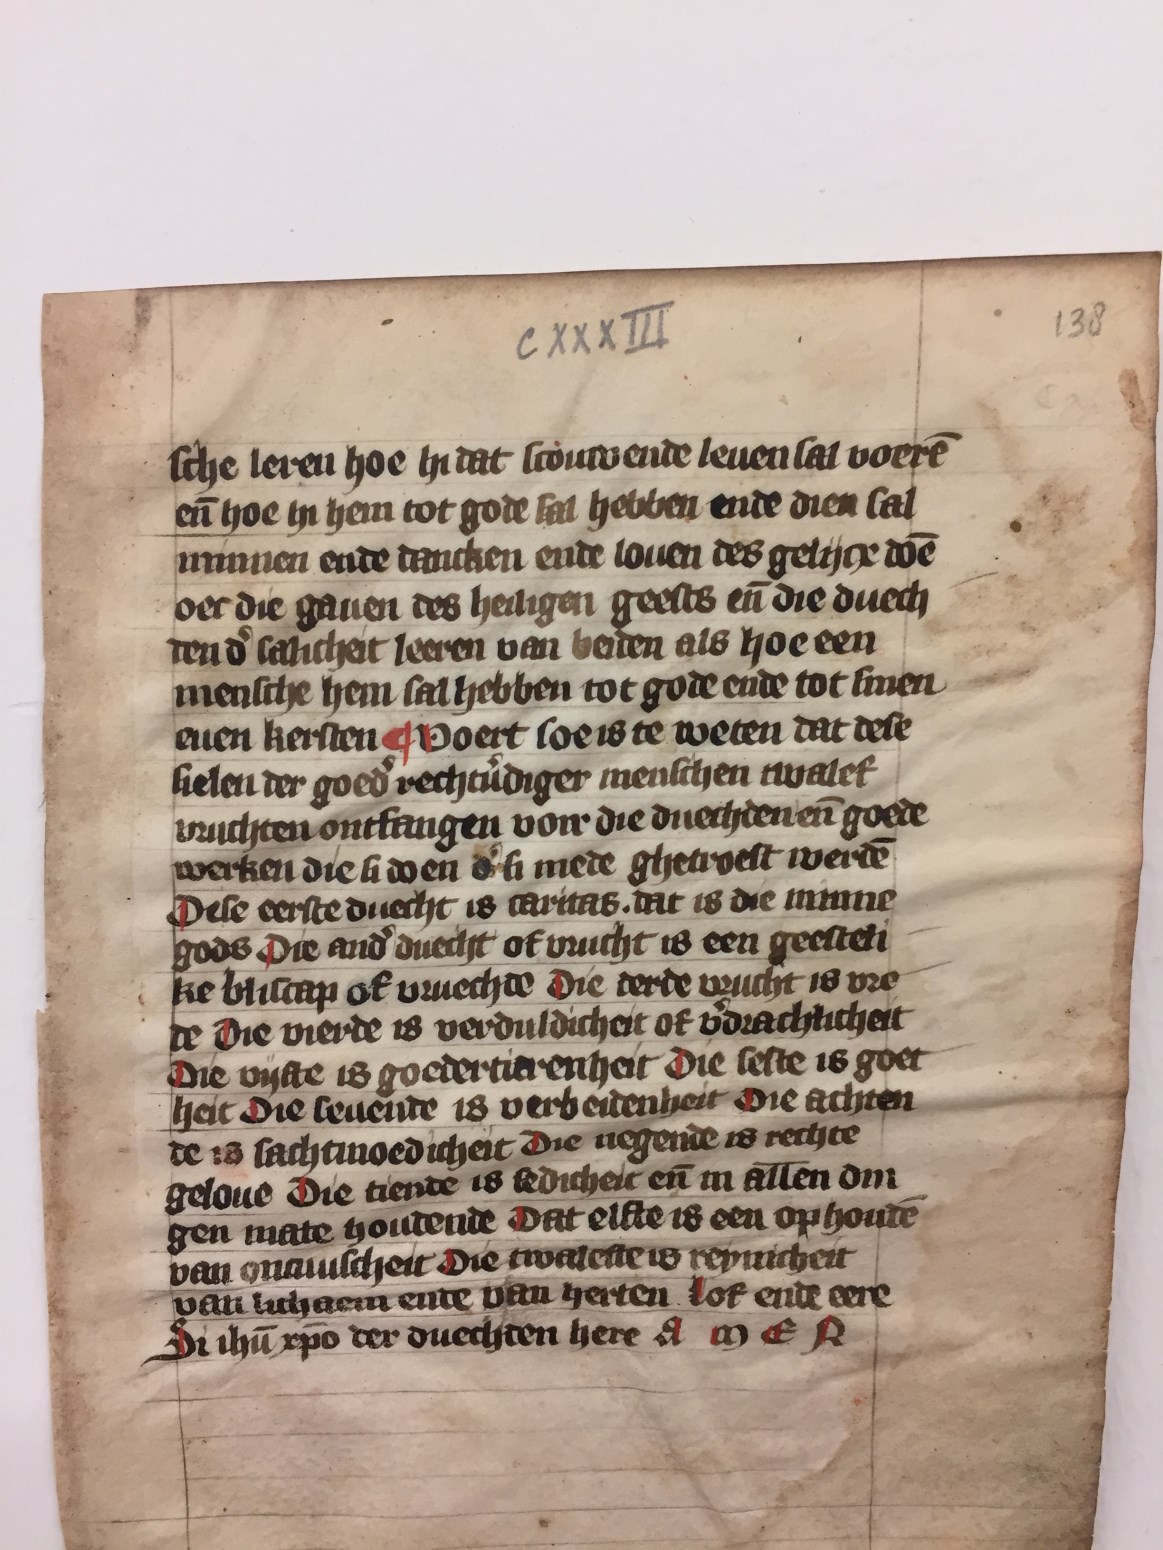 CXXXIII
138
sche leren hoe hi dat scouwende leuen sal voerē
en̄ hoe hi hem tot gode sal hebben ende dien sal
minnen ende dancken ende louen des gelijcx doē
oec die gauen des heiligen geests en̄ die duech
den d̾ salicheit leeren van beiden als hoe een
mensche hem sal hebben tot gode ende tot sinen
euen kersten ¶ Voert soe is te weten dat dese
sielen der goed̾ rechtu̾diger menschen twalef
vruchten ontfangen voir die duechden en̄ goede
werken die si doen d̾ si mede ghetroest werdē
Dese eerste duecht is caritas. dat is die minne
gods Die and̾ duecht of vrucht is een geesteli
ke bliscap of vruechde Die derde vrucht is vre
de Die vierde is verduldicheit of v̾drachlicheit
Die vijfte is goedertierenheit Die seste is goet
heit Die seuende is verbeidenheit Die achten
de is sachtmoedicheit Die negende is rechte
geloue Die tiende is sedicheit en̄ in allen din
gen mate houdende Dat elfte is een ophoudē
van oncuuscheit Die twalefte is reynicheit
van lichaem ende van herten Lof ende eere
Si ihū xp̄o der duechden here A M E N